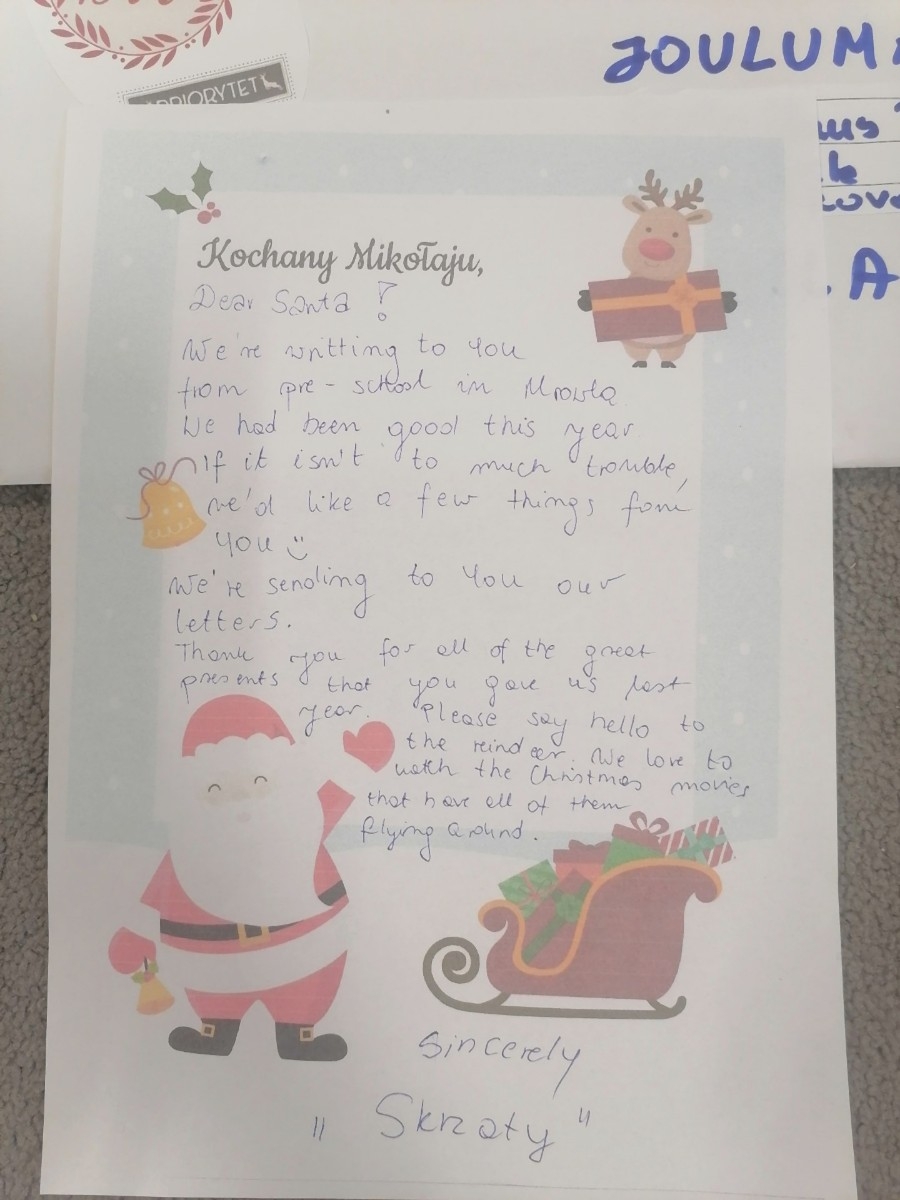 PRIORYTET
JOULUM
Kochany Mikołaju,
Dear Santa!
We're writting to You
from pre-school in Mrowla
We had been good this year
If it isn't to much trouble,
we'd like a few things fom
You
We're sending to You our
letters.
Thank you for all of the great
presents that you gave us last
year. Please say hello to
the reindeer. We love to
watch the Christmas movies
that have all of them
flying around.
Sincerely
"Skrzaty"